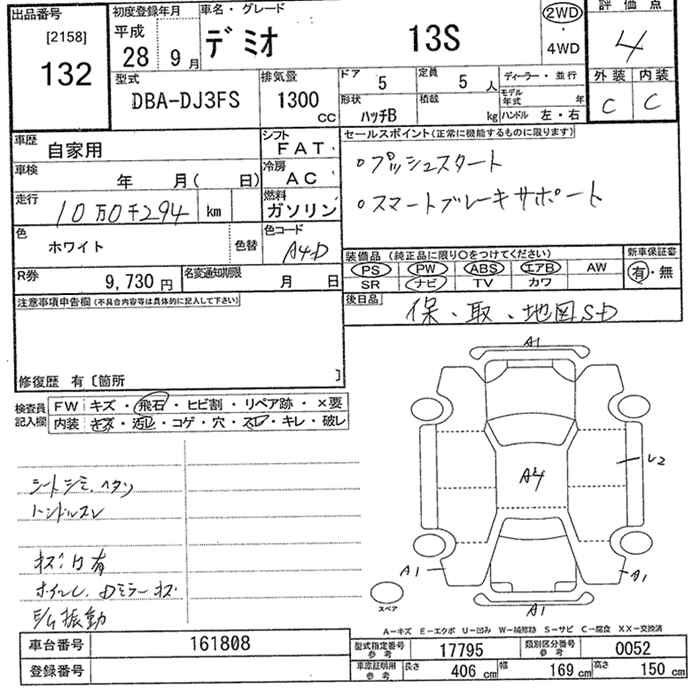 出品番号 [2158] 132
初度登録年月 平成 28 年 9 月
車名・グレード デミオ 13S
2WD・4WD
評価点 4
型式 DBA-DJ3FS
排気量 1300 CC
ドア 5
定員 5 人
形状 ハッチB
積載 kg
ディーラー・並行
モデル年式 年
ハンドル 左・右
外装 C
内装 C
車歴 自家用
シフト FAT
車検 年 月( 日)
冷房 AC
走行 10万0千294 km
燃料 ガソリン
色 ホワイト
色替
色コード A4D
R券 9,730 円
名変通知期限 月 日
セールスポイント(正常に機能するものに限ります)
○プッシュスタート
○スマートブレーキサポート
装備品(純正品に限り○をつけてください)
PS PW ABS エアB AW
SR ナビ TV カワ
新車保証書 有・無
後日品 保、取、地図SD
注意事項申告欄(不具合内容等は具体的に記入して下さい)
修復歴 有〔箇所 〕
検査員記入欄
FW キズ・飛石・ヒビ割・リペア跡・×要
内装 キズ・汚レ・コゲ・穴・スレ・キレ・破レ
シートシミ、ヘタリ
ハンドルスレ
キズ凹有
ホイール、Dミラーキズ
振動
A1
A4
A1
A1
A1
スペア
A-キズ E-エクボ U-凹み W-補修跡 S-サビ C-腐食 XX-交換済
車台番号 161808
登録番号
型式指定番号 参考 17795
類別区分番号 参考 0052
車庫証明用 参考 長さ 406 cm 幅 169 cm 高さ 150 cm